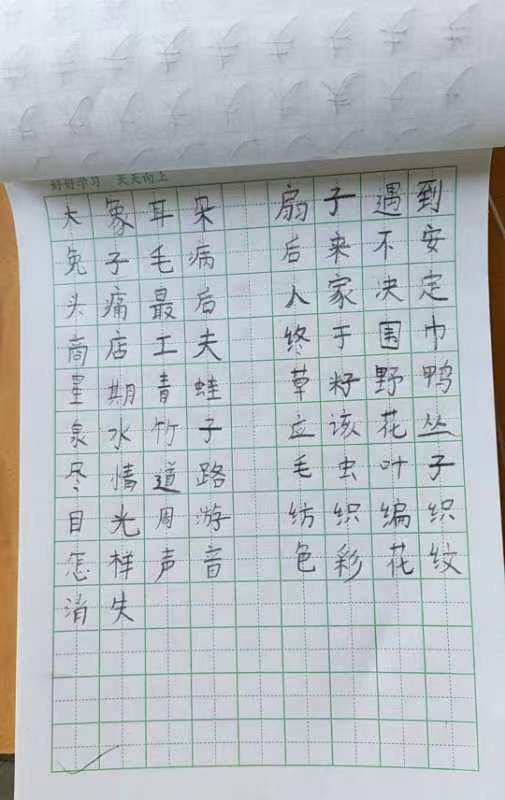 好好学习 天天向上
大象耳朵 扇子遇到
兔子毛病 后来不安
头痛最后 人家决定
商店工夫 终于围巾
星期青蛙 草籽野鸭
泉水竹子 应该花丛
尽情道路 毛虫叶子
目光周游 纺织编织
怎样声音 色彩花纹
消失